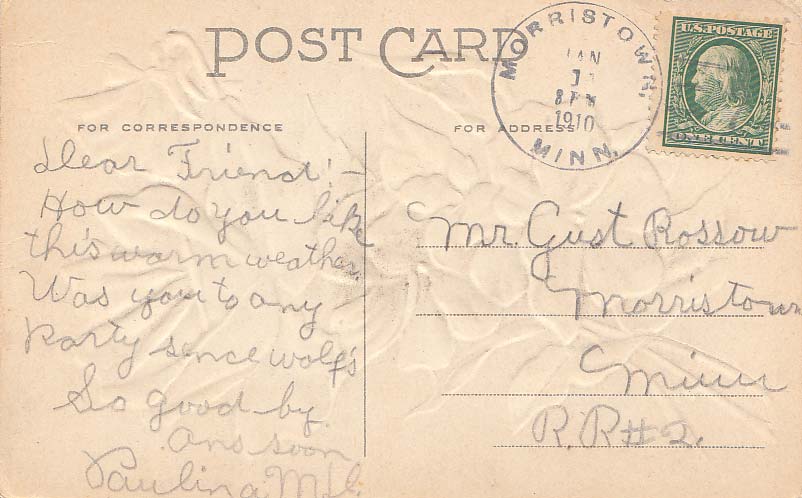 POST CARD
MORRISTOWN,
JAN
8 PM
1910
MINN.
U.S. POSTAGE
ONE CENT
FOR CORRESPONDENCE
FOR ADDRESS
Dear Friend!—
How do you like
this warm weather.
Was you to any
Party sence wolf's
So good by.
Ans soon
Paulina
Mr. Gust Rossow
Morristown
Minn
R.R#2.